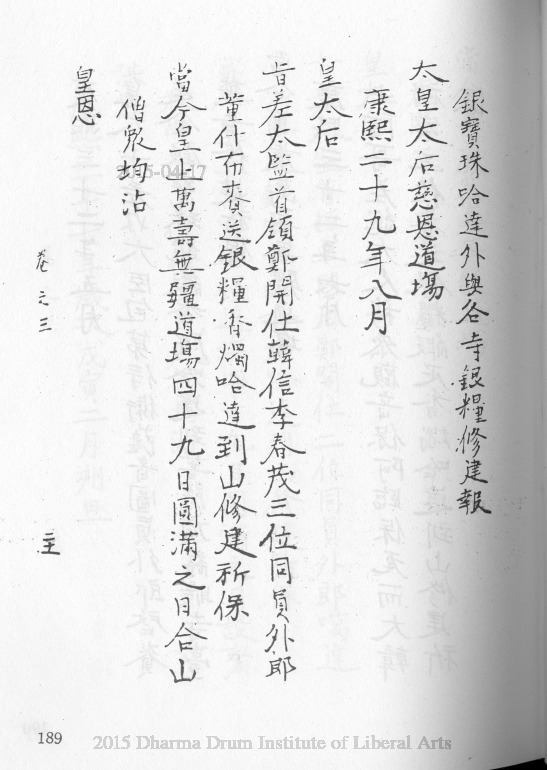 銀寶珠哈達外與各寺銀糧修建報
太皇太后慈恩道場
康熙二十九年八月
皇太后
旨差太監首領鄭開仕韓信李春茂三位同員外郎
董什布賚送銀糧香燭哈達到山修建祈保
當今皇上萬壽無疆道場四十九日圓滿之日合山
僧衆均沾
皇恩
卷之三
189
2015 Dharma Drum Institute of Liberal Arts